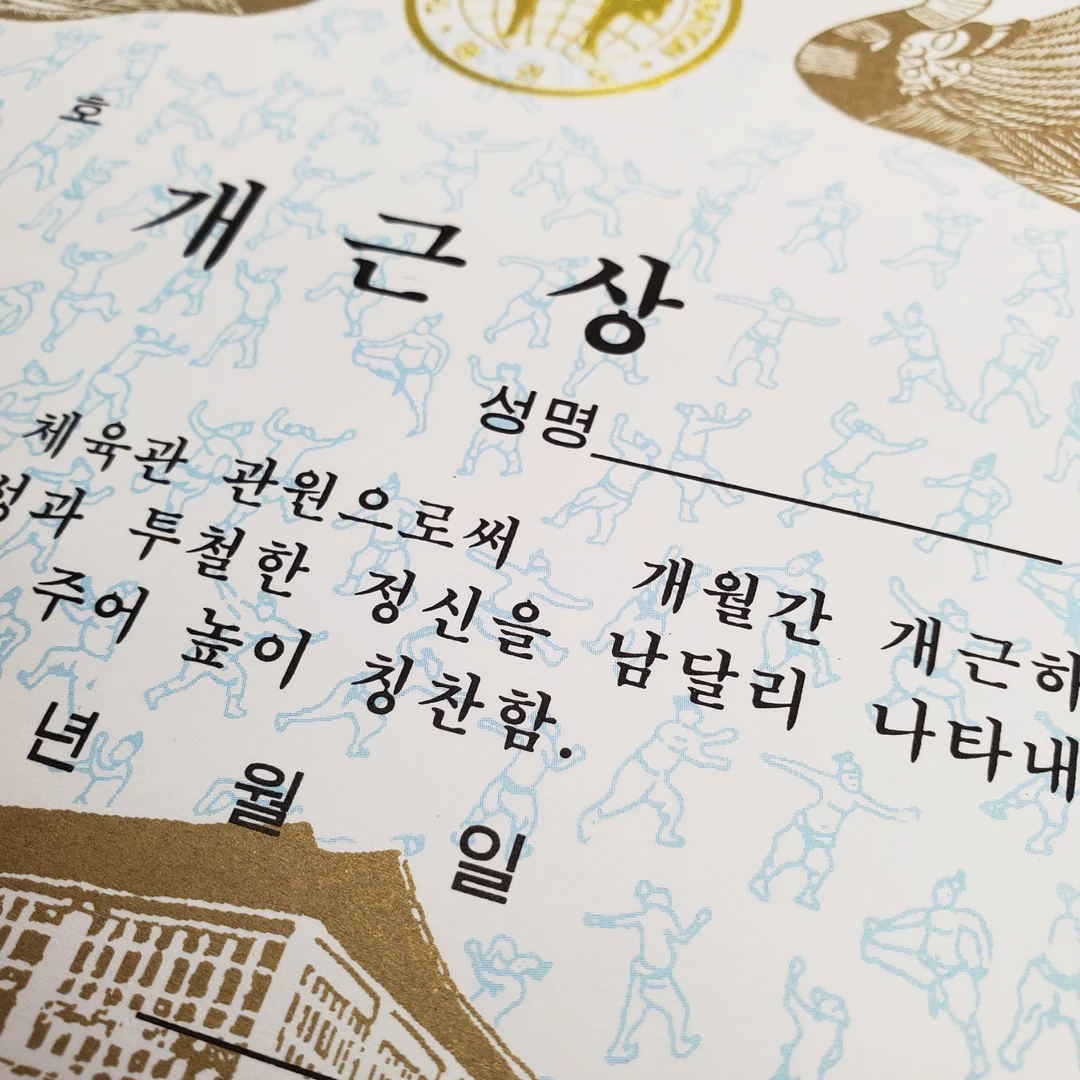 호
개근상
성명
체육관 관원으로써 개월간 개근하
과 투철한 정신을 남달리 나타내
주어 높이 칭찬함.
년 월 일